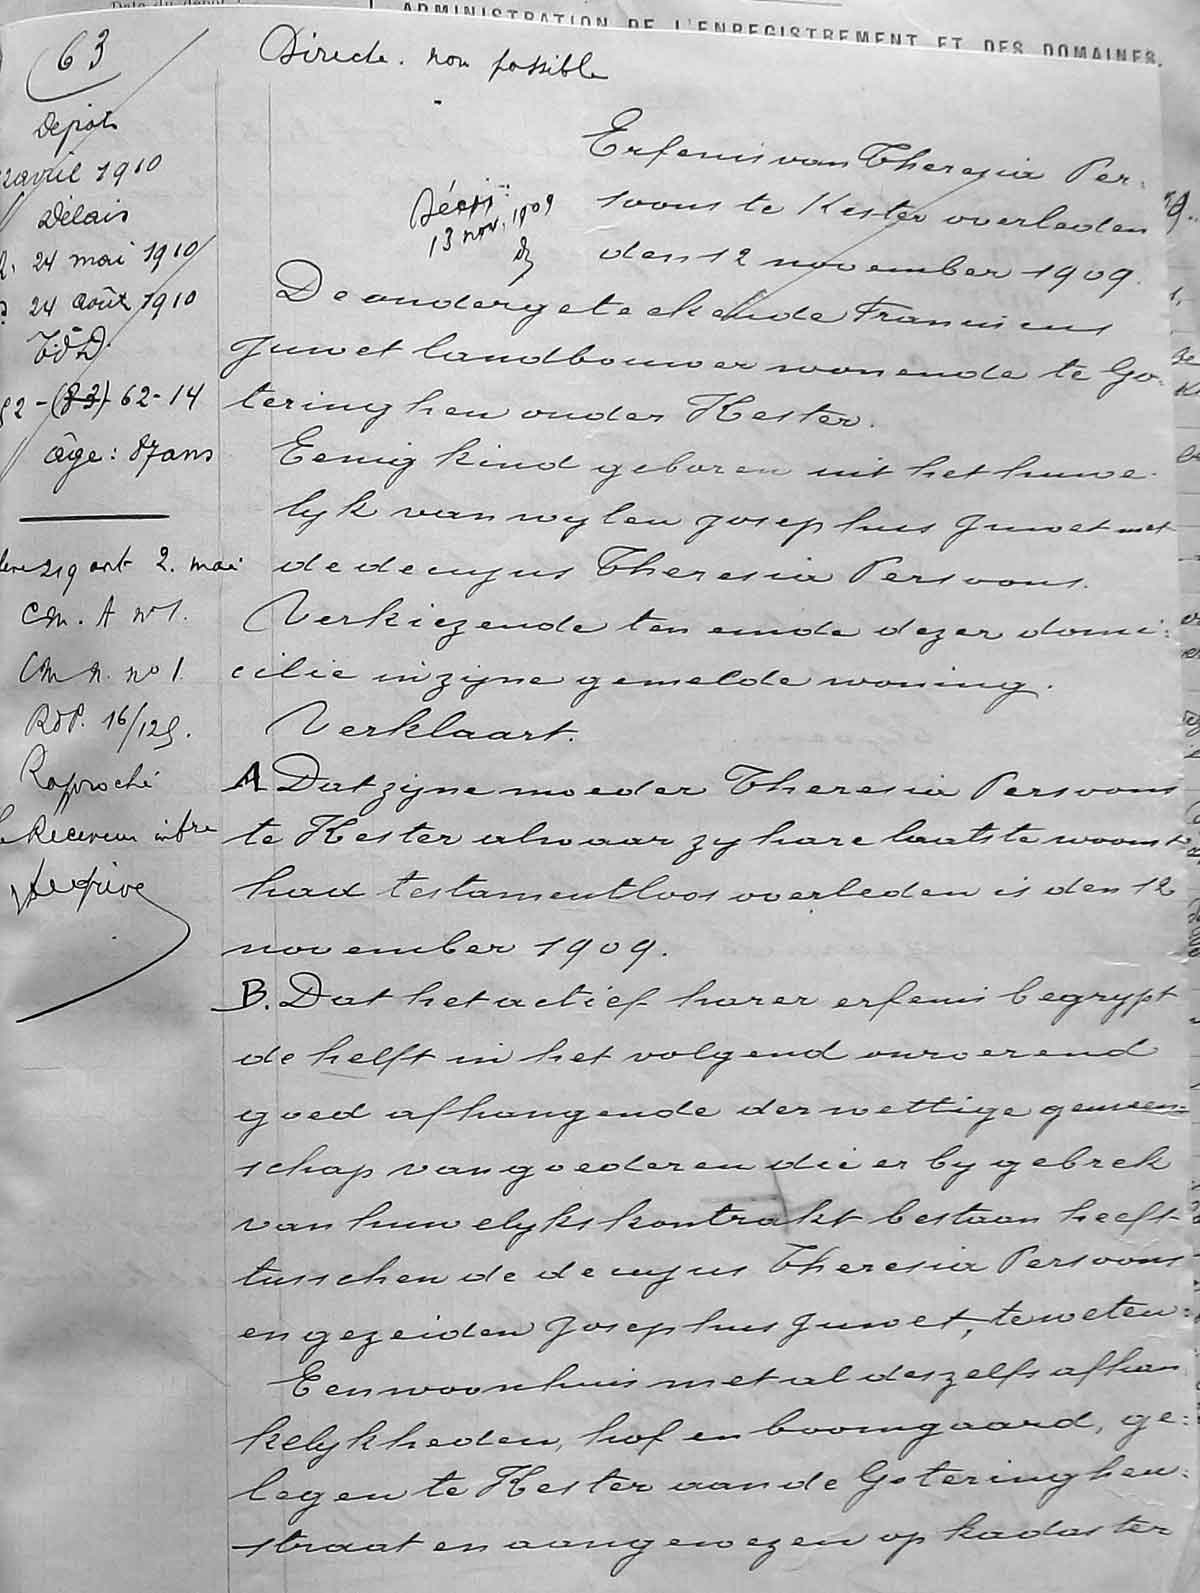 ADMINISTRATION DE L'ENREGISTREMENT ET DES DOMAINES.
63
Directe. non possible
Dépôt
avril 1910
Délais
24 mai 1910
24 août 1910
62-14
âge: 87 ans
2. mai
Cm. A no 1.
Cm n. no 1.
RdP. 16/129.
Raproché
Receveur
13 nov. 1909
Erfenis van Theresia Per-
soons te Kester overleden
den 12 november 1909.
De ondergeteekende Franciscus
Juwet landbouwer wonende te Go-
teringhen onder Kester.
Eenig kind geboren uit het huwe-
lyk van wylen Josephus Juwet met
de decujus Theresia Persoons.
Verkiezende ten einde dezer domi-
cilie in zyne gemelde woning.
Verklaart.
A Dat zyne moeder Theresia Persoons
te Kester alwaar zy hare laatste woonst
had testamentloos overleden is den 12
november 1909.
B. Dat het actief harer erfenis begrypt
de helft in het volgend onroerend
goed afhangende der wettige gemeen-
schap van goederen die er by gebrek
van huwelykskontrakt bestaan heeft
tusschen de decujus Theresia Persoons
en gezeiden Josephus Juwet, te weten:
Een woonhuis met al deszelfs afhan
kelykheden, hof en boomgaard, ge-
legen te Kester aan de Goteringhen-
straat en aangewezen op kadaster